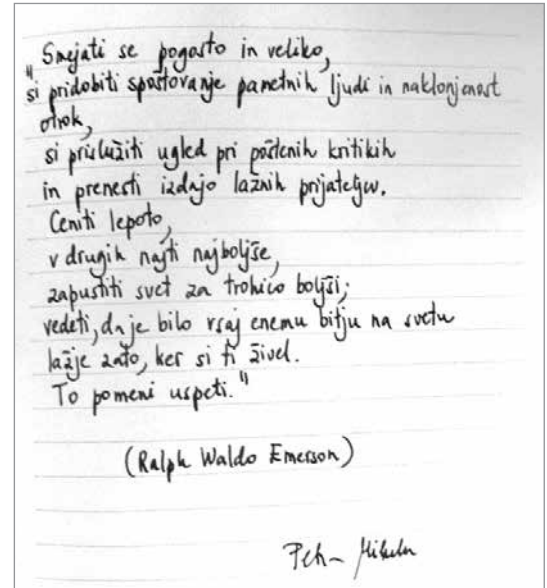 "Smejati se pogosto in veliko,
si pridobiti spoštovanje pametnih ljudi in naklonjenost
otrok,
si prislužiti ugled pri poštenih kritikih
in prenesti izdajo lažnih prijateljev.
Ceniti lepoto,
v drugih najti najboljše,
zapustiti svet za trohico boljši;
vedeti, da je bilo vsaj enemu bitju na svetu
lažje zato, ker si ti živel.
To pomeni uspeti."
(Ralph Waldo Emerson)